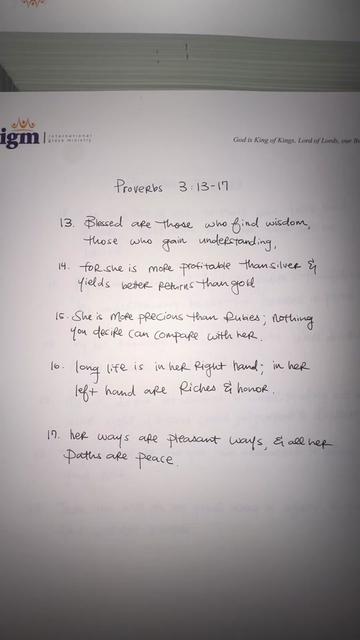 igm
international
grace ministry
God is King of Kings, Lord of Lords, our
Proverbs 3:13-17
13. Blessed are those who find wisdom,
those who gain understanding,
14. for she is more profitable than silver &
yields better returns than gold
15. She is more precious than rubies; nothing
you desire can compare with her.
16. long life is in her right hand; in her
left hand are riches & honor.
17. her ways are pleasant ways, & all her
paths are peace.